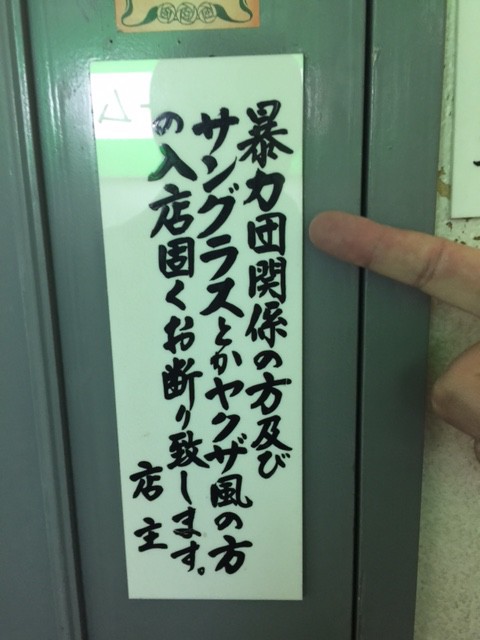 暴力団関係の方及び
サングラスとかヤクザ風の方
の入店固くお断り致します。
店主